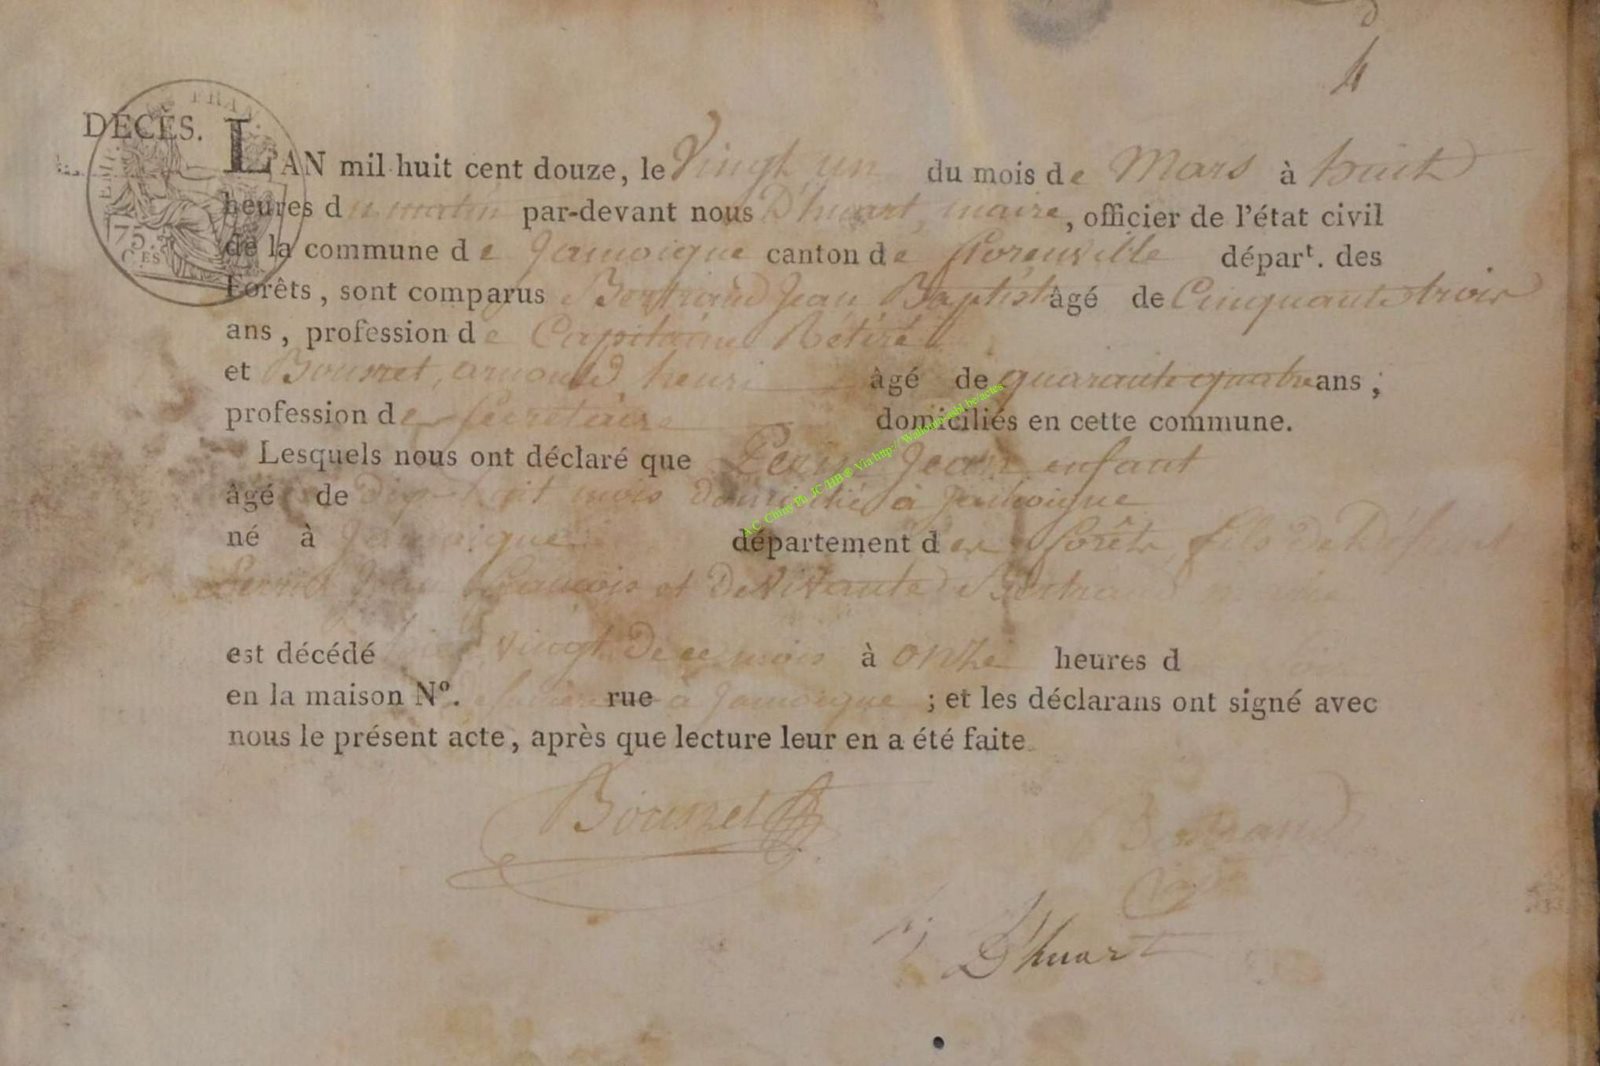 4
DÉCÈS.
L'AN mil huit cent douze, le Vingt un du mois de Mars à huit
heures du matin par-devant nous D'huart, maire, officier de l'état civil
de la commune de Jamoigne canton de florenville départ. des
Forêts, sont comparus Bertrand Jean Baptist âgé de Cinquante trois
ans, profession de Capitaine Rétiré
et Bousret, arnould henri âgé de quarante quatre ans;
profession de secretaire domiciliés en cette commune.
Lesquels nous ont déclaré que Jean enfant
âgé de dix huit mois domicilié à Jamoigne
né à Jamoigne département des forêts, fils de Défunt
françois et De Bertrand
est décédé vingt De ce mois à onze heures d
en la maison N°. rue à Jamoigne ; et les déclarans ont signé avec
nous le présent acte, après que lecture leur en a été faite
Bousret
Bertrand
D'huart
75.
C.ES
FRAN
A.C. Chiny Ph. JC/HB © Via http://Wallonia-asbl.be/actes